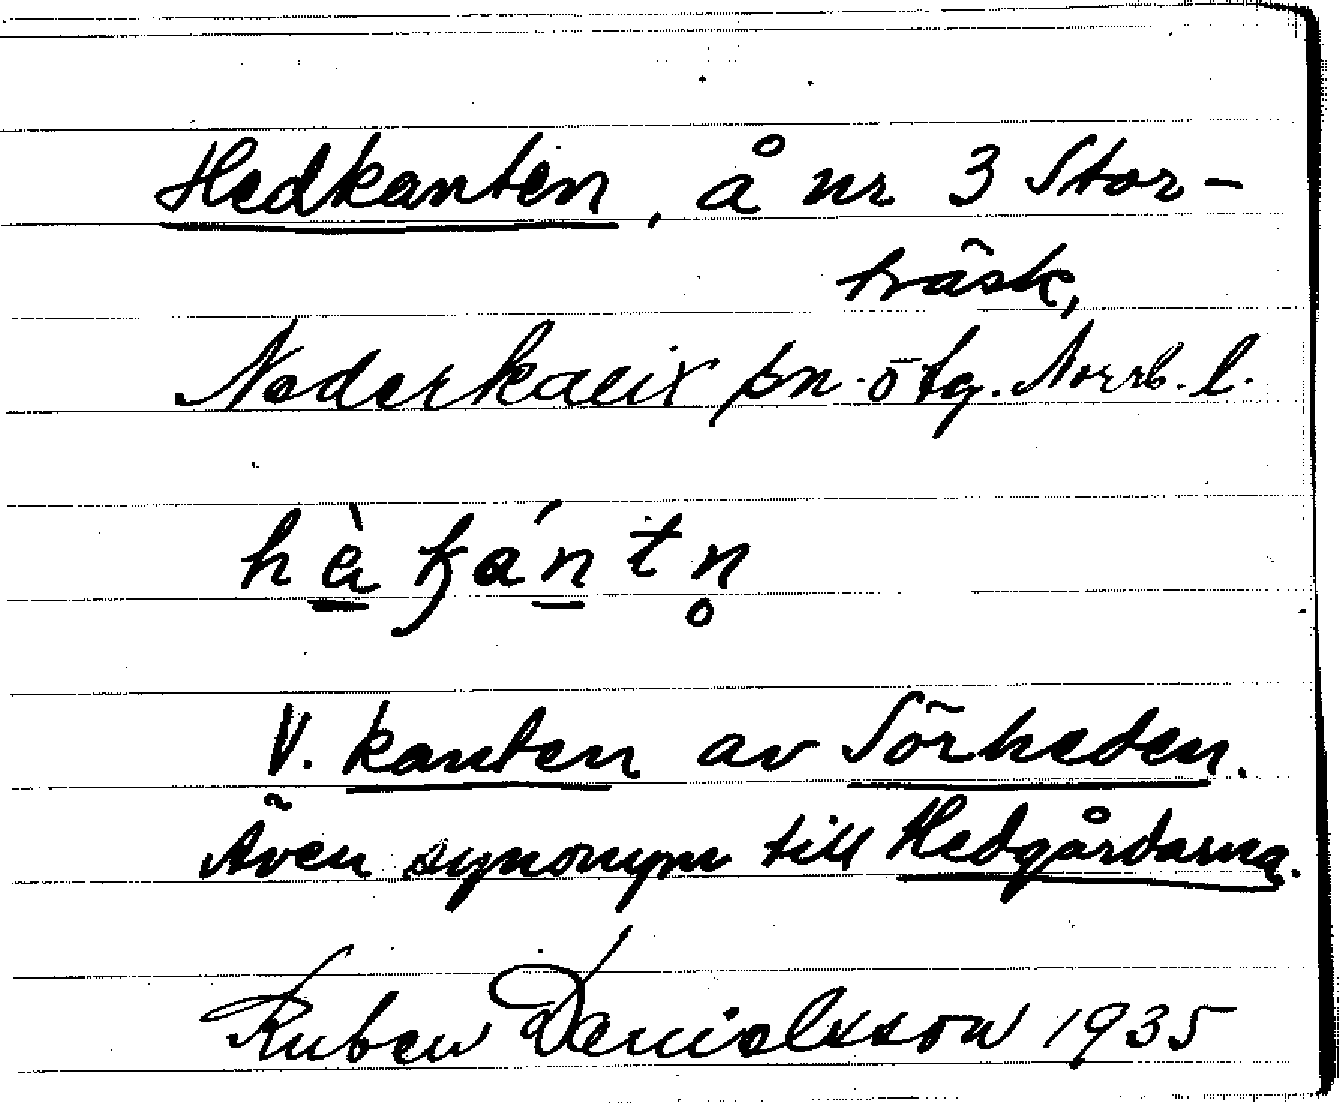 Hedkanten, å nr 3 Stor-
träsk,
Nederkalix sn. ö tg. Norrb. l.
hὰ kántn̥
V. kanten av Sörheden.
Även synonym till Hedgårdarna.
Ruben Danielsson 1935